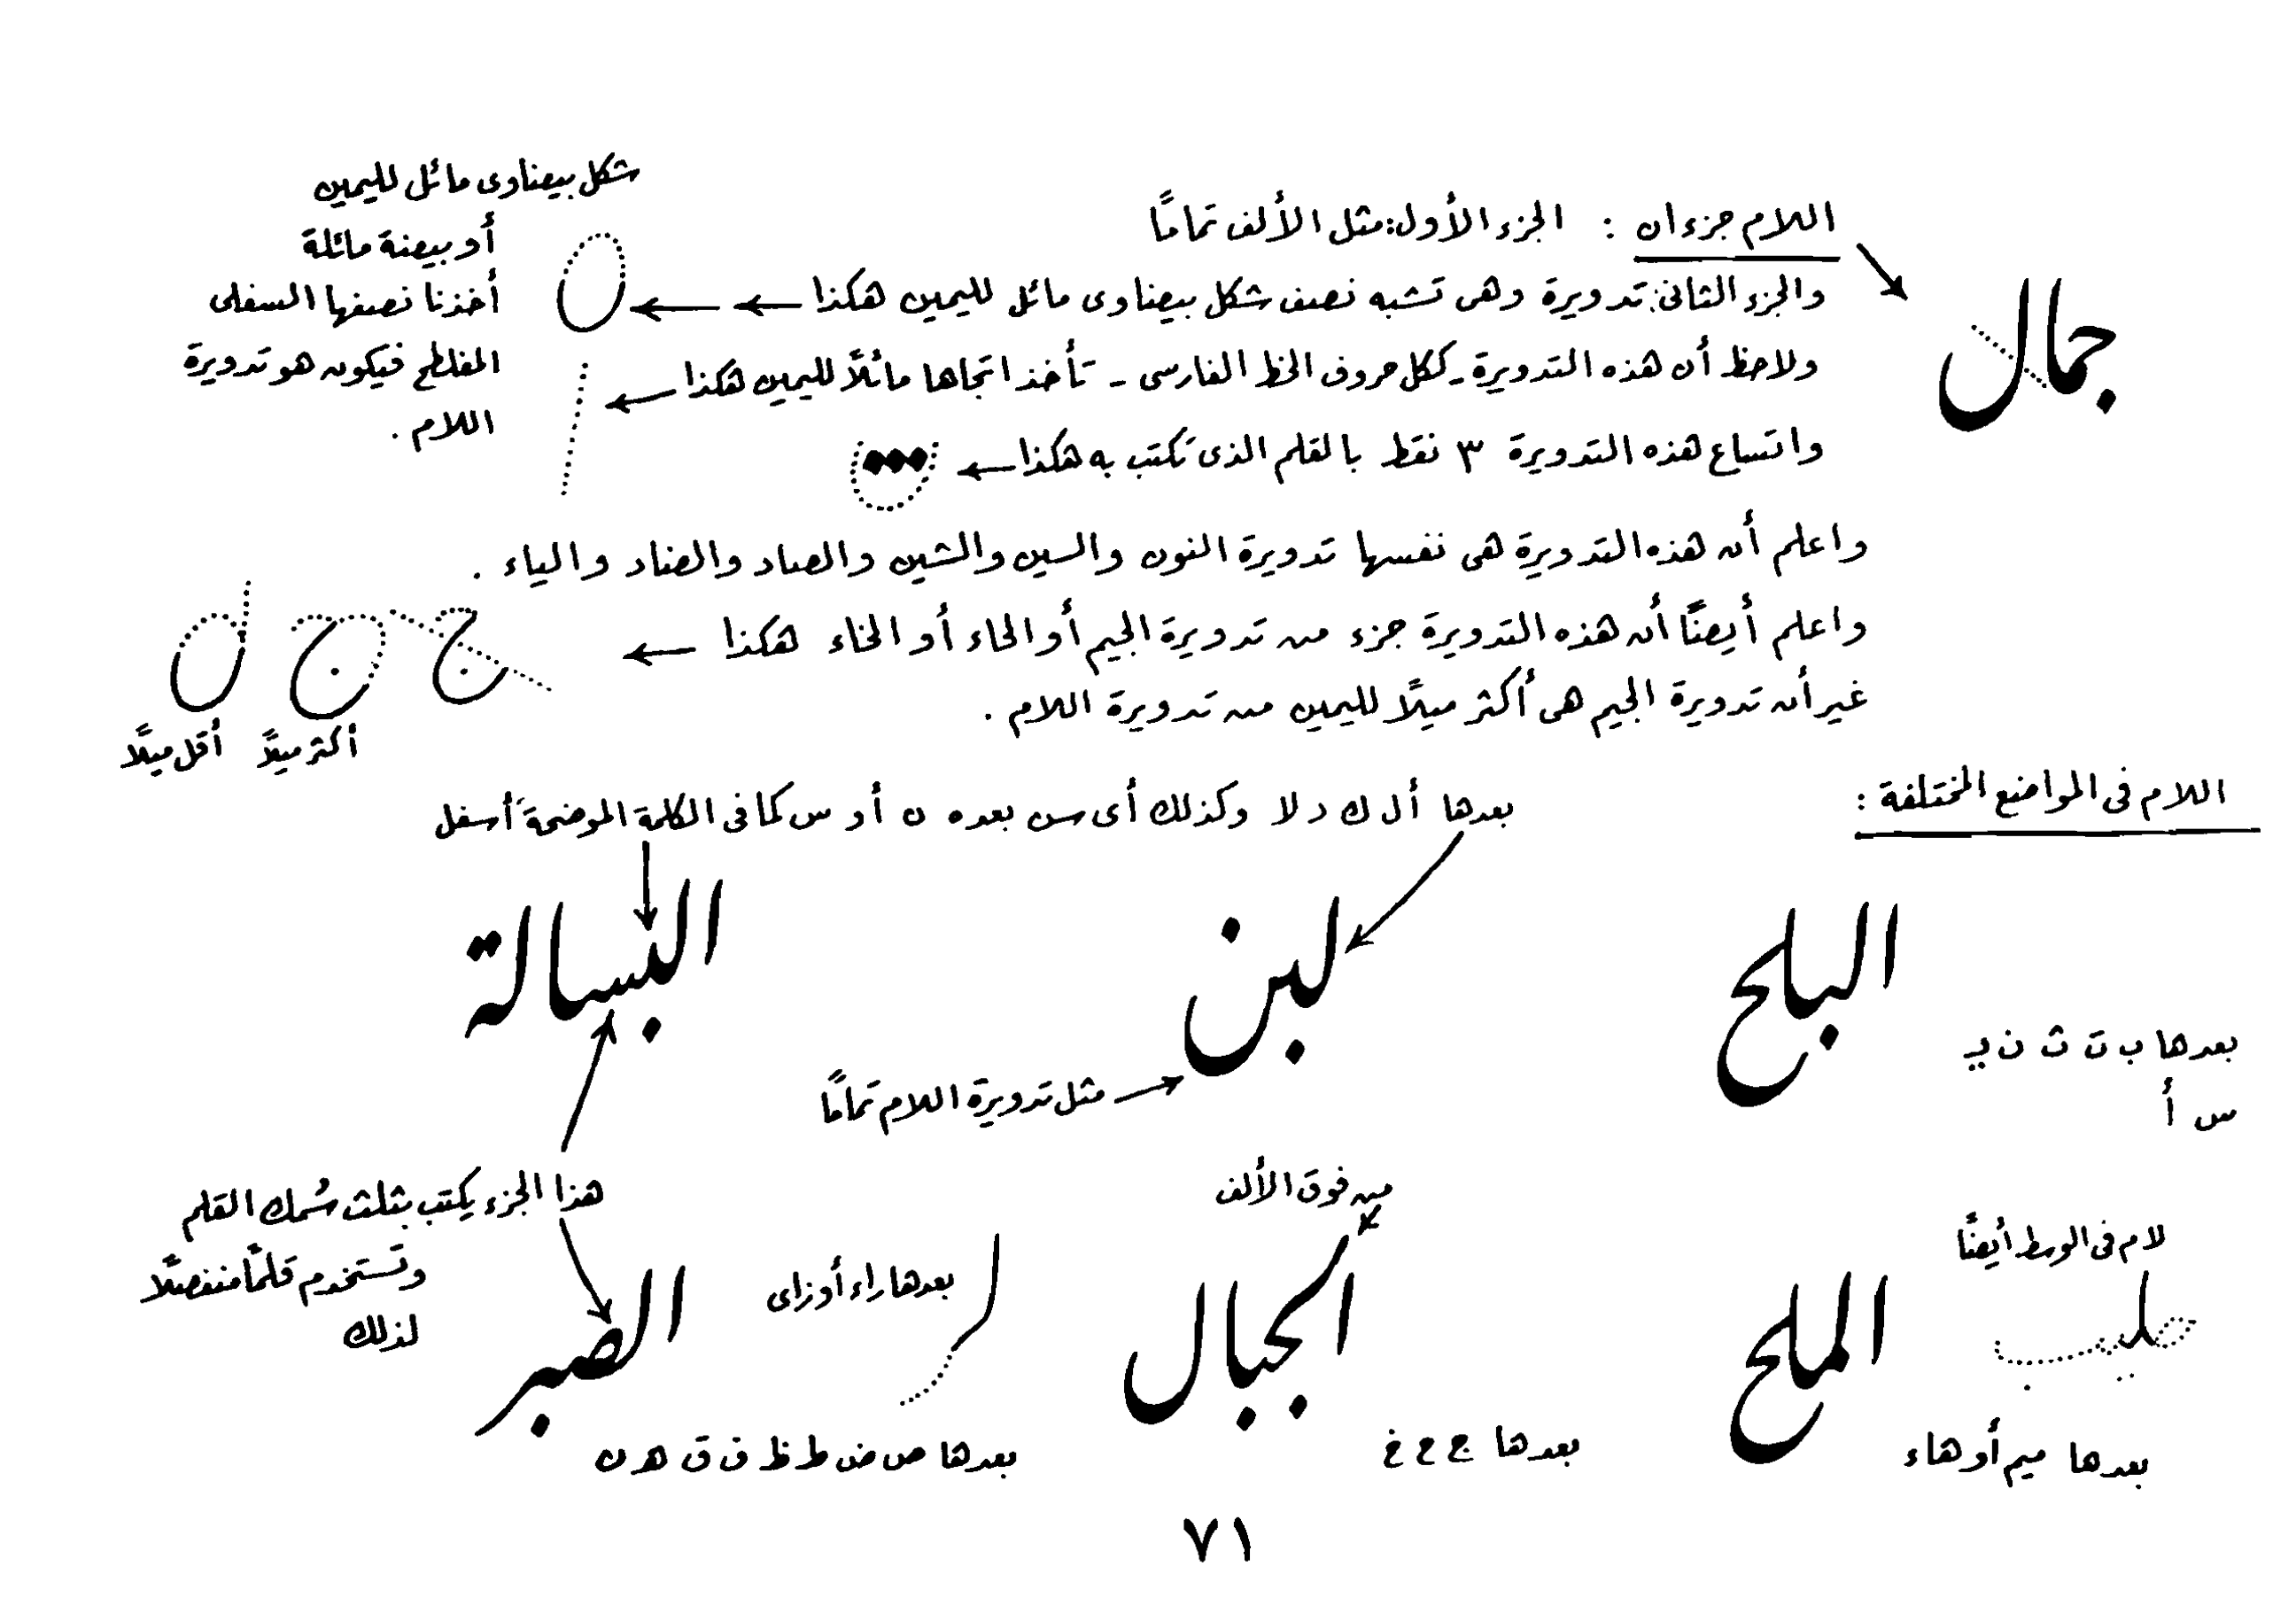 اللام جزءان : الجزء الأول: مثل الألف تمامًا
والجزء الثانى: تدويرة وهى تشبه نصف شكل بيضاوى مائل لليمين هكذا
ولاحظ أن هذه التدويرة - ككل حروف الخط الفارسى - تأخذ اتجاها مائلًا لليمين هكذا
واتساع هذه التدويرة ٣ نقط بالقلم الذى تكتب به هكذا
جمال
شكل بيضاوى مائل لليمين
أو بيضة مائلة
أخذنا نصفها السفلى
المفلطح فيكون هو تدويرة
اللام .
واعلم أن هذه التدويرة هى نفسها تدويرة النون والسين والشين والصاد والضاد والياء .
واعلم أيضًا أن هذه التدويرة جزء من تدويرة الجيم أو الحاء أو الخاء هكذا
غير أن تدويرة الجيم هى أكثر ميلًا لليمين من تدويرة اللام .
ج ج ل
أكثر ميلًا أقل ميلًا
اللام فى المواضع المختلفة :
بعدها أ ل ك د لا وكذلك أى سن بعده ن أو س كما فى الكلمة الموضحة أسفل
البلح لبن البسالة
بعدها ب ت ث ن يـ
س أ
مثل تدويرة اللام تمامًا
هذا الجزء يكتب بثلث سُمك القلم
وتستخدم قلمًا منفصلًا
لذلك
من فوق الألف
لام فى الوسط أيضًا
صليب
الملح الجبال
بعدها راء أو زاى
الصبر
بعدها ميم أو هاء
بعدها ج ح خ
بعدها ص ض ط ظ ف ق هـ ن
٧١